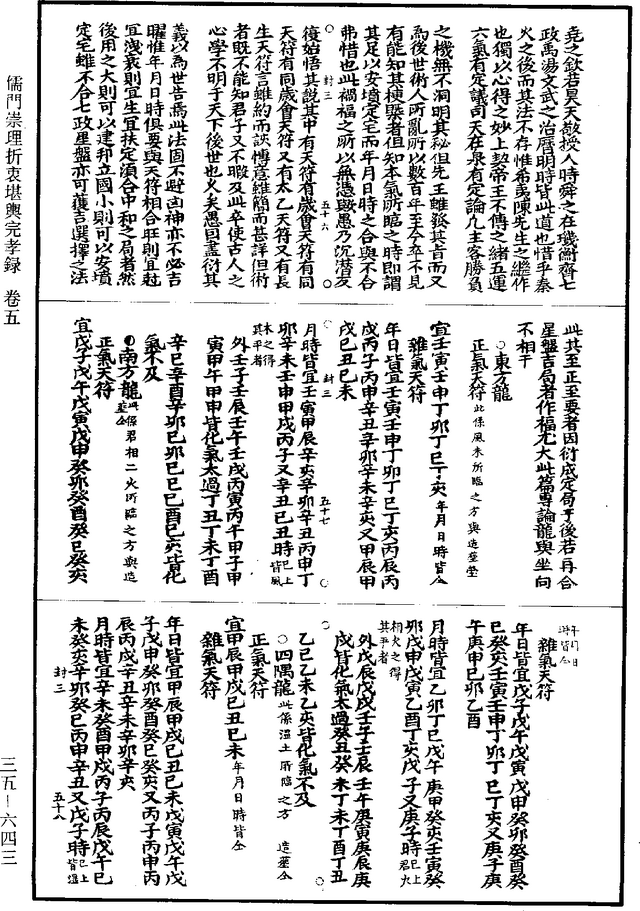 儒門崇理折衷堪輿完孝錄 卷五
三五—六四三
堯之欽若昊天敬授人時舜之在璣衡齊七
政禹湯文武之治曆明時皆此道也惜乎秦
火之後而其法不存惟希夷陳先生之繼作
也獨以心得之妙上契帝王不傳之緒五運
六氣有定議司天在泉有定論凡主客勝負
之機無不洞明其秘但先王雖發其旨而又
為後世術人所亂所以數百年至今卒不見
有能知其梗槩者但知本氣所臨之時即謂
其足以安墳定宅而年月日時之合與不合
弗惜也此禍福之所以無憑歟愚乃沉潛反
封三 五十六
復始悟其說其中有天符有歲會天符有同
天符有同歲會天符又有太乙天符又有長
生天符言雖約而該博意雖簡而甚詳但術
者既不能知君子又不暇及此卒使古人之
心學不明于天下後世也久矣愚因盡衍其
義以為世告焉此法固不避凶神亦不必吉
曜惟年月日時俱要與天符相合旺則宜尅
宜洩衰則宜生宜扶定須合中和之局者然
後用之大則可以建邦立國小則可以安墳
定宅雖不合七政星盤亦可獲吉選擇之法
此其至正至要者因衍成定局于後若再合
星盤吉局者作福尤大此篇專論龍與坐向
不相干
○東方龍
正氣天符 此係風木所臨之方與造塟仝
宜壬寅壬申丁卯丁巳丁亥 年月日時皆仝
雜氣天符
年日皆宜壬寅壬申丁卯丁巳丁亥丙辰丙
戌丙子丙申辛丑辛卯辛未辛亥又甲辰甲
戌己丑己未
封三 五十七
月時皆宜壬寅甲辰辛亥辛卯辛丑丙申丁
卯辛未壬申甲戌丙子又辛丑己丑時 已上皆風木之得其平者
外壬子壬辰壬午壬戌丙寅丙午甲子甲
寅甲午甲申皆化氣太過丁丑丁未丁酉
辛巳辛酉辛卯己卯己巳己酉己亥皆化
氣不及
○南方龍 此係君相二火所臨之方與造塟仝
正氣天符
宜戊子戊午戊寅戊申癸卯癸酉癸巳癸亥
年月日時皆仝
雜氣天符
年日皆宜戊子戊午戊寅戊申癸卯癸酉癸
巳癸亥壬寅壬申丁卯丁巳丁亥又庚子庚
午庚申己卯乙酉
月時皆宜乙卯丁巳戊午庚申癸亥壬寅癸
卯戊申戊寅乙酉丁亥戊子又庚子時 已上君火相火之得其平者
外戊辰戊戌壬子壬辰壬午庚寅庚辰庚
戌皆化氣太過癸丑癸未丁未丁酉丁丑
乙巳乙未乙亥皆化氣不及
○四隅龍 此係濕土所臨之方造塟仝
正氣天符
宜甲辰甲戌己丑己未 年月日時皆仝
雜氣天符
年日皆宜甲辰甲戌己丑己未戊寅戊午戊
子戊申癸卯癸酉癸巳癸亥又丙子丙申丙
辰丙戌辛丑辛未辛卯辛亥
月時皆宜辛未癸酉甲戌丙子丙辰戊午己
未癸亥辛卯癸巳丙申辛丑又戊子時 已上皆濕
封三 五十八